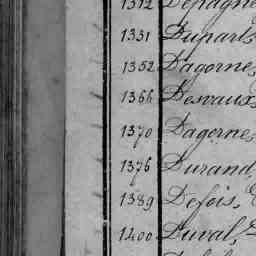 1312 Depagne
1331 Duparts
1352 Dagorne,
1366 Desvaux,
1370 Dagorne,
1376 Durand,
1389 Defois,
1400 Duval,